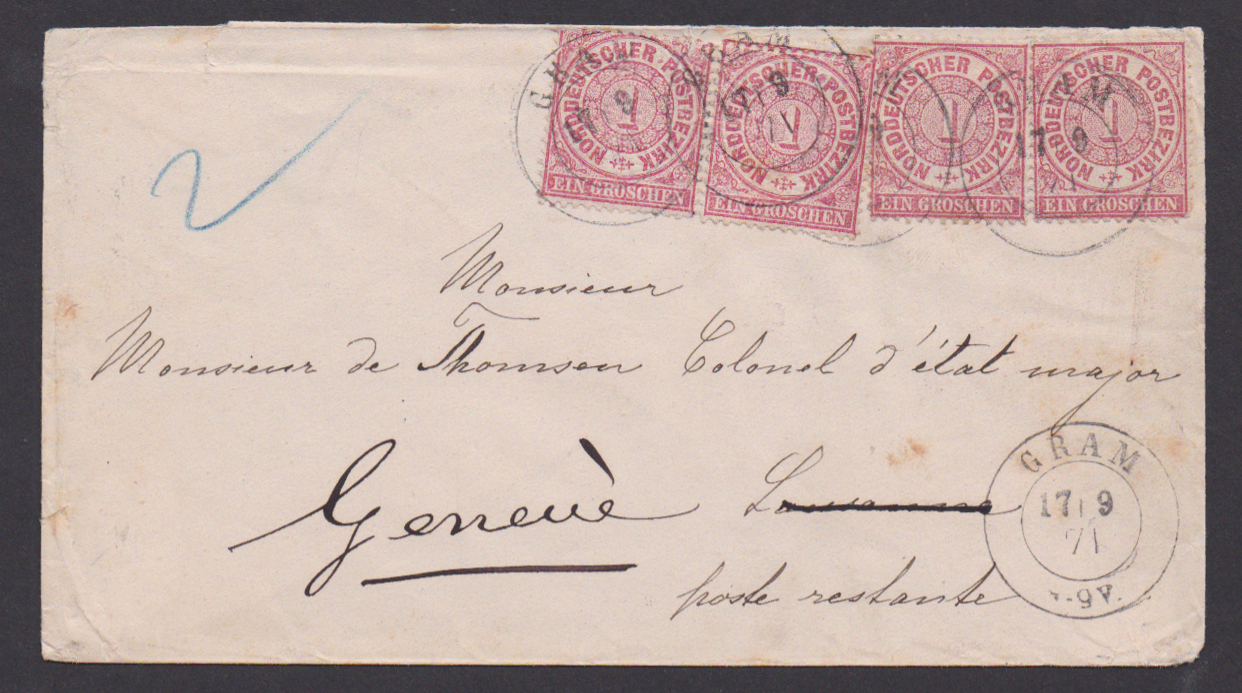 NORDDEUTSCHER POSTBEZIRK
1
EIN GROSCHEN
NORDDEUTSCHER POSTBEZIRK
1
EIN GROSCHEN
NORDDEUTSCHER POSTBEZIRK
1
EIN GROSCHEN
NORDDEUTSCHER POSTBEZIRK
1
EIN GROSCHEN
GRAM
17 9
71
GRAM
17 9
71
17 9
71
2
Monsieur
Monsieur de Thomsen Colonel d'état major
Genevè Lausanne
poste restante
GRAM
17 9
71
-9V.